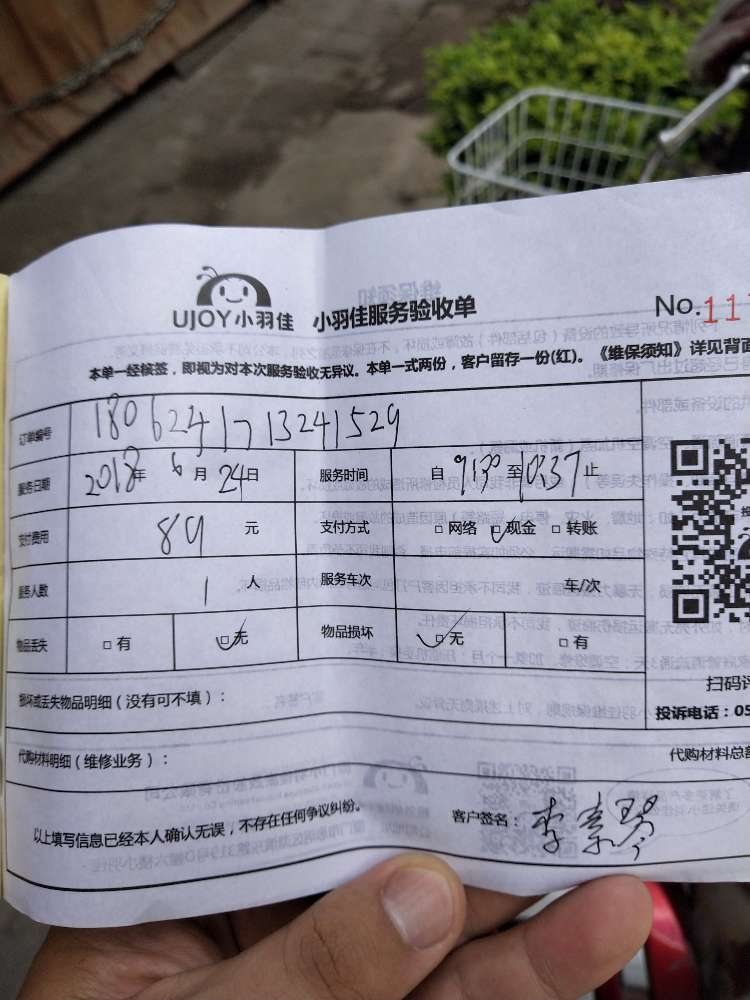 UJOY小羽佳 小羽佳服务验收单 No.11
本单一经核签，即视为对本次服务验收无异议。本单一式两份，客户留存一份(红)。《维保须知》详见背面
订单编号 1806241713241529
服务日期 2018年 6月 24日 服务时间 自 9:30 至 10:37 止
支付费用 89 元 支付方式 □网络 ☑现金 □转账
服务人数 1 人 服务车次 车/次
物品丢失 □有 ☑无 物品损坏 ☑无 □有
扫码评
损坏或丢失物品明细（没有可不填）：
投诉电话：05
代购材料明细（维修业务）： 代购材料总
以上填写信息已经本人确认无误，不存在任何争议纠纷。 客户签名： 李素琴